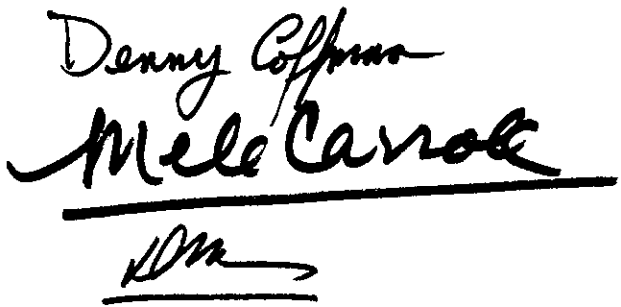 Denny Coffman
Mele Carroll